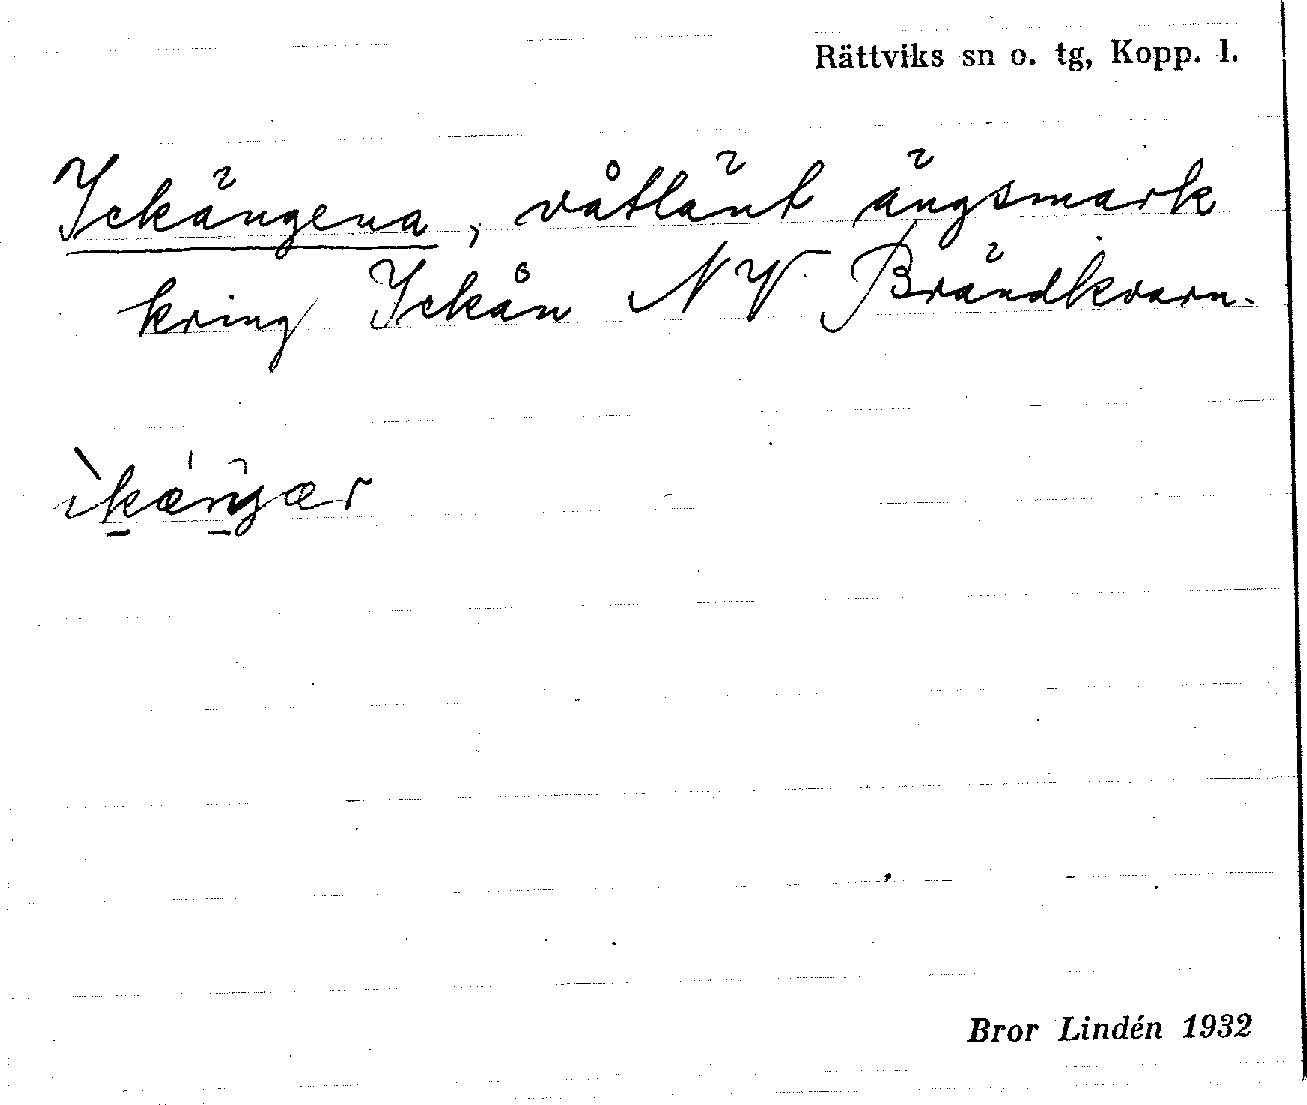 Rättviks sn o. tg, Kopp. l.
Ickängena, våtlänt ängsmark
kring Ickån NV Brändkvarn.
ìkæŋgær
Bror Lindén 1932